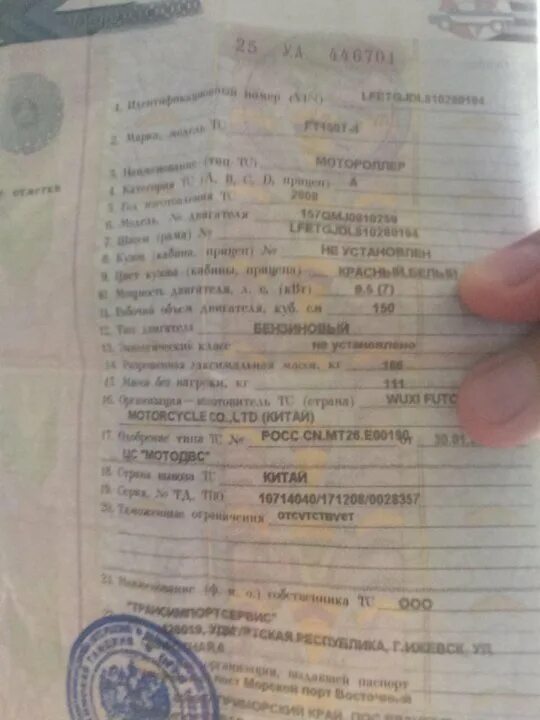 25 УА 446701
1. Идентификационный номер (VIN) LFETGJDL810280194
2. Марка, модель ТС
3. Наименование (тип ТС) МОТОРОЛЛЕР
4. Категория ТС (А, В, С, D, прицеп) А
5. Год изготовления ТС 2008
6. Модель, № двигателя 157QMJ0810259
7. Шасси (рама) № LFETGJDL810280194
8. Кузов (кабина, прицеп) № НЕ УСТАНОВЛЕН
9. Цвет кузова (кабины, прицепа) КРАСНЫЙ,БЕЛЫЙ
10. Мощность двигателя, л. с. (кВт) 9.5 (7)
11. Рабочий объем двигателя, куб. см 150
12. Тип двигателя БЕНЗИНОВЫЙ
13. Экологический класс не установлено
14. Разрешенная максимальная масса, кг 186
15. Масса без нагрузки, кг 111
16. Организация—изготовитель ТС (страна) WUXI FUTO
MOTORCYCLE CO.,LTD (КИТАЙ)
17. Одобрение типа ТС № РОСС CN.МТ26.Е00190 от 30.01
ЦС "МОТОДВС"
18. Страна вывоза ТС КИТАЙ
19. Серия, № ТД, ТПО 10714040/171208/0028357
20. Таможенные ограничения отсутствует
21. Наименование (ф. и. о.) собственника ТС ООО
"ТРАНСИМПОРТСЕРВИС"
426019, УДМУРТСКАЯ РЕСПУБЛИКА, Г.ИЖЕВСК, УЛ.
организации, выдавшей паспорт
пост Морской порт Восточный
ПРИМОРСКИЙ КРАЙ,